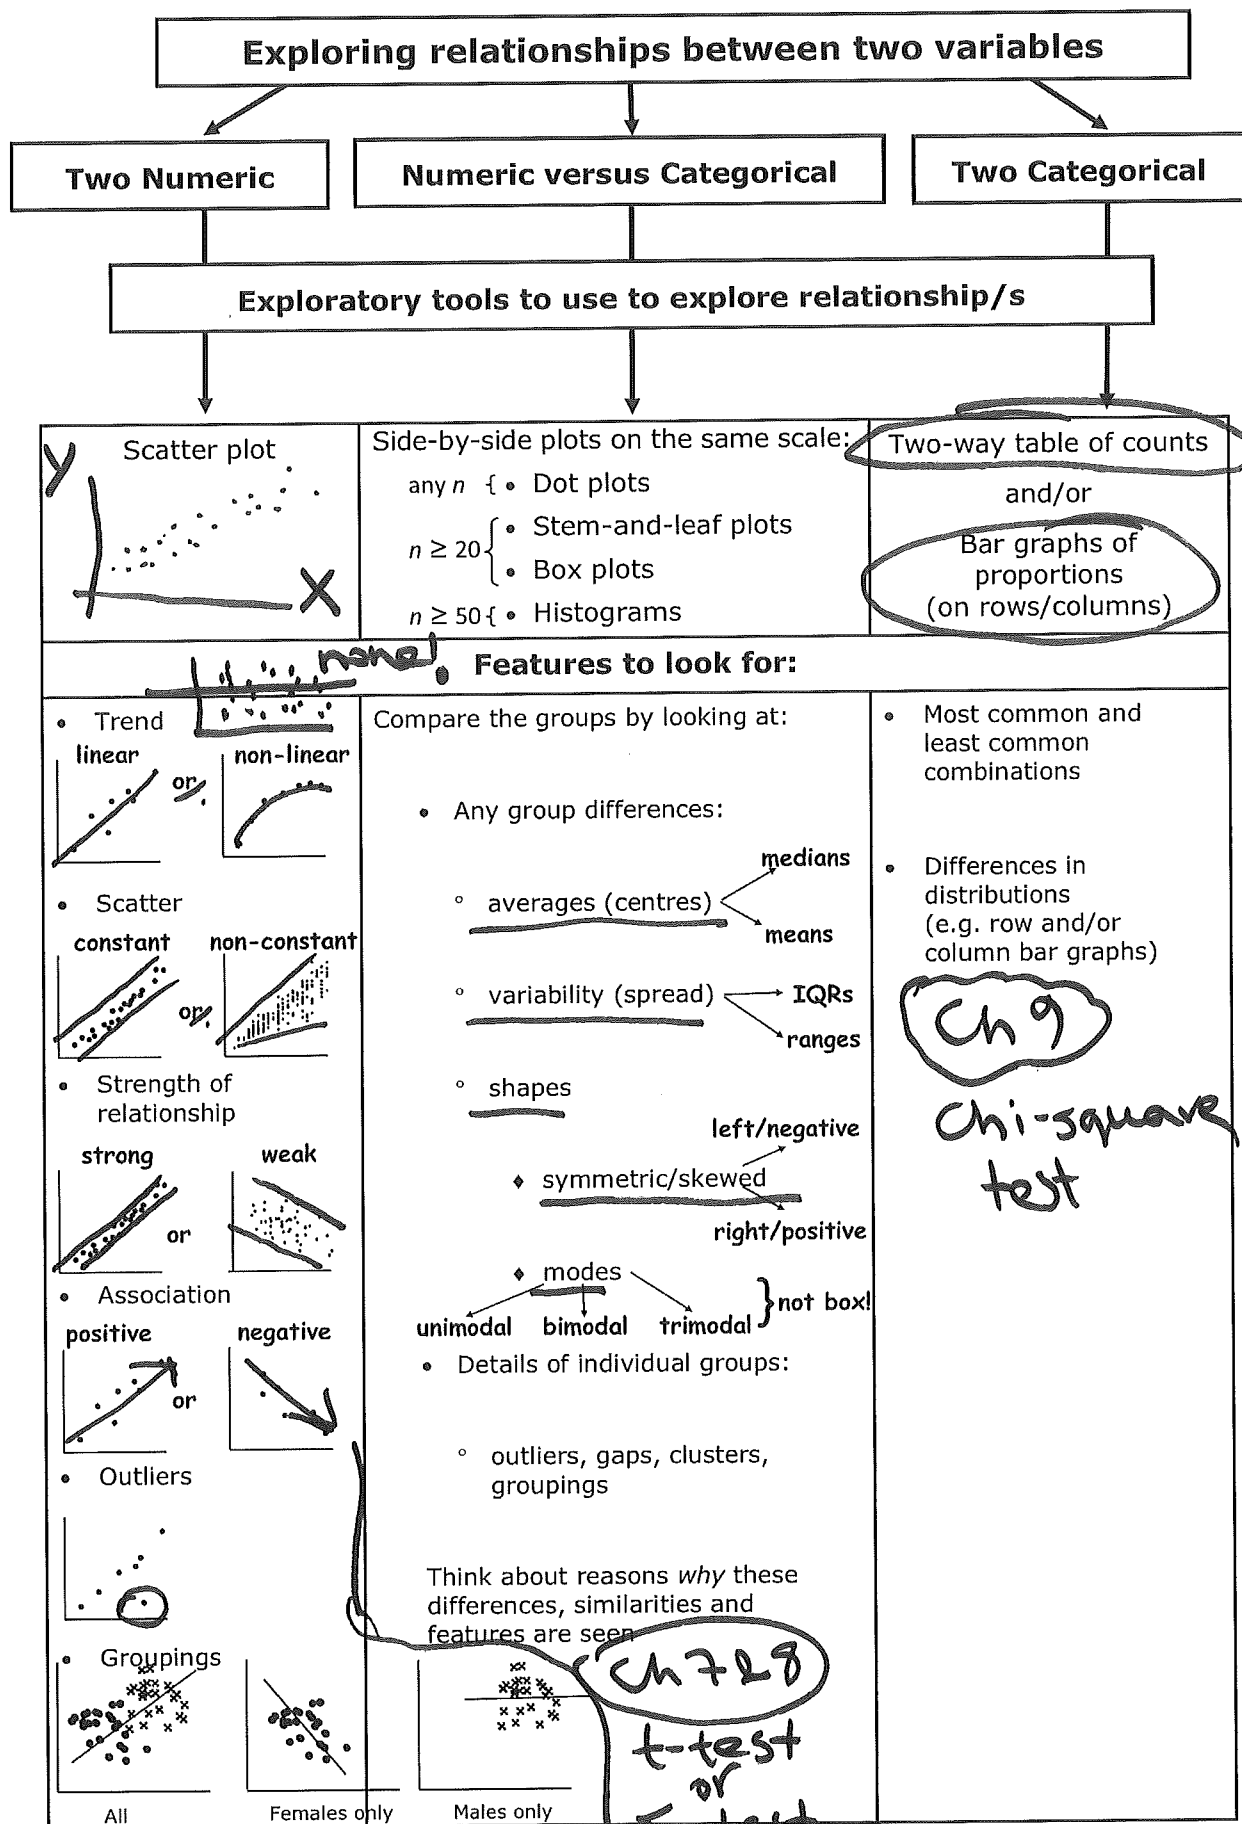 Exploring relationships between two variables
Two Numeric
Numeric versus Categorical
Two Categorical
Exploratory tools to use to explore relationship/s
Y
Scatter plot
X
Side-by-side plots on the same scale:
any n { • Dot plots
n ≥ 20 { • Stem-and-leaf plots
• Box plots
n ≥ 50 { • Histograms
Two-way table of counts
and/or
Bar graphs of
proportions
(on rows/columns)
none!
Features to look for:
• Trend
linear or non-linear
• Scatter
constant or non-constant
• Strength of
relationship
strong or weak
• Association
positive or negative
• Outliers
• Groupings
All
Females only
Males only
Compare the groups by looking at:
• Any group differences:
medians
° averages (centres)
means
° variability (spread) IQRs
ranges
° shapes
left/negative
♦ symmetric/skewed
right/positive
♦ modes
unimodal bimodal trimodal } not box!
• Details of individual groups:
° outliers, gaps, clusters,
groupings
Think about reasons why these
differences, similarities and
features are seen
Ch 7 & 8
t-test
or
test
• Most common and
least common
combinations
• Differences in
distributions
(e.g. row and/or
column bar graphs)
Ch 9
Chi-square
test